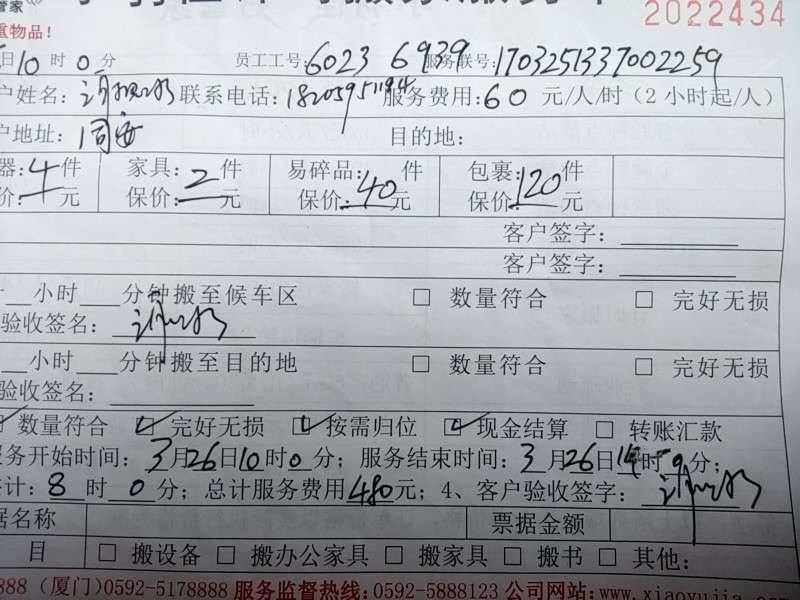 管家
2022434
重物品！
日10时0分 员工工号：6023 6939 服务联号：1703251337002259
户姓名： 联系电话： 服务费用：60元/人/时（2小时起/人）
户地址：同安 目的地：
器：4件 家具：2件 易碎品：40件 包裹：120件
价： 元 保价： 元 保价： 元 保价： 元
客户签字：
客户签字：
小时 分钟搬至候车区 □ 数量符合 □ 完好无损
验收签名：
小时 分钟搬至目的地 □ 数量符合 □ 完好无损
验收签名：
数量符合 ☑ 完好无损 ☑ 按需归位 ☑ 现金结算 □ 转账汇款
服务开始时间：3月26日10时0分；服务结束时间：3月26日14时 分；
计：8时0分；总计服务费用480元；4、客户验收签字：
据名称 票据金额
目 □ 搬设备 □ 搬办公家具 □ 搬家具 □ 搬书 □ 其他：
888（厦门）0592-5178888 服务监督热线：0592-5888123 公司网站：www.xiaoyujia.com